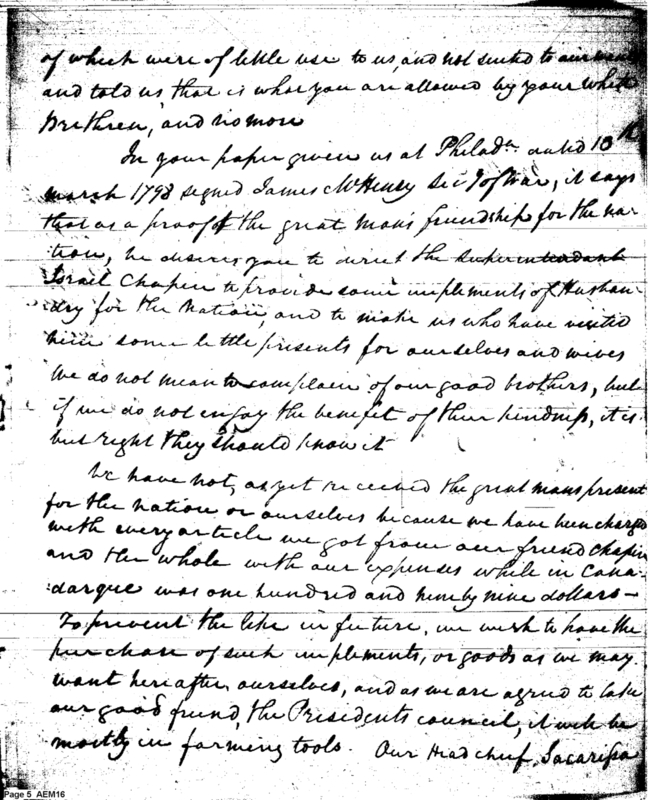 of which were of little use to us, and not suited to our wants
and told us that is what you are allowed by your White
Brethren, and no more
In your paper given us at Philada. dated 13th
march 1798 signed James McHenry Secy of War, it says
that as a proof of the great mans friendship for the na-
tion, he desires you to direct the superintendant
Israel Chapin to provide some implements of Husban-
dry for the Nation, and to make us who have visited
him some little presents for ourselves and wives
We do not mean to complain of our good brothers, but
if we do not enjoy the benefit of their kindness, it is
but right they should know it
We have not, as yet received the great mans present
for the nation or ourselves because we have been charged
with every article we got from our friend Chapin
and the whole with our expenses while in Cana-
darque was one hundred and ninety nine dollars—
To prevent the like in future, we wish to have the
purchase of such implements, or goods as we may
want hereafter ourselves, and as we are agreed to take
our good friend, the Presidents council, it will be
mostly in farming tools. Our Head chief, Sacarissa
Page 5 AEM16